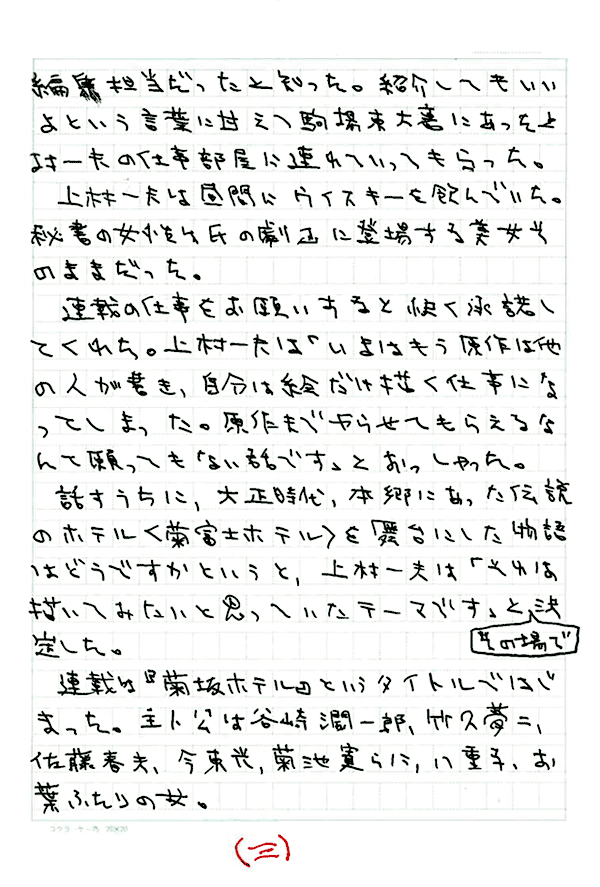 編集担当だったと知った。紹介してもいい
よという言葉に甘えて駒場東大裏にあった上
村一夫の仕事部屋に連れていってもらった。
上村一夫は昼間にウイスキーを飲んでいた。
秘書の女性が氏の劇画に登場する美女そ
のままだった。
連載の仕事をお願いすると快く承諾し
てくれた。上村一夫は「いまはもう原作は他
の人が書き、自分は絵だけ描く仕事にな
ってしまった。原作までやらせてもらえるな
んて願ってもない話です」とおっしゃった。
話すうちに、大正時代、本郷にあった伝説
のホテル〈菊富士ホテル〉を舞台にした物語
はどうですかというと、上村一夫は「それは
描いてみたいと思っていたテーマです」と決
その場で
定した。
連載は『菊坂ホテル』というタイトルではじ
まった。主人公は谷崎潤一郎、竹久夢二、
佐藤春夫、今東光、菊池寛らに、八重子、お
葉ふたりの女。
コクヨ ケ-75 20×20
(三)